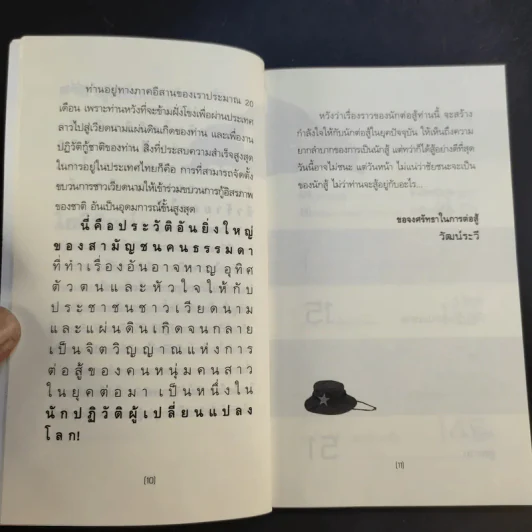 ท่านอยู่ทางภาคอีสานของเราประมาณ 20
เดือน เพราะท่านหวังที่จะข้ามฝั่งโขงเพื่อผ่านประเทศ
ลาวไปสู่เวียดนามแผ่นดินเกิดของท่าน และเพื่องาน
ปฏิวัติกู้ชาติของท่าน สิ่งที่ประสบความสำเร็จสูงสุด
ในการอยู่ในประเทศไทยก็คือ การที่สามารถจัดตั้ง
ขบวนการชาวเวียดนามให้เข้าร่วมขบวนการกู้อิสรภาพ
ของชาติ อันเป็นอุดมการณ์ขั้นสูงสุด
นี่คือประวัติอันยิ่งใหญ่
ของสามัญชนคนธรรมดา
ที่ทำเรื่องอันอาจหาญ อุทิศ
ตัวตนและหัวใจให้กับ
ประชาชนชาวเวียดนาม
และแผ่นดินเกิดจนกลาย
เป็นจิตวิญญาณแห่งการ
ต่อสู้ของคนหนุ่มคนสาว
ในยุคต่อมา เป็นหนึ่งใน
นักปฏิวัติผู้เปลี่ยนแปลง
โลก!
[10]
หวังว่าเรื่องราวของนักต่อสู้ท่านนี้ จะสร้าง
กำลังใจให้กับนักต่อสู้ในยุคปัจจุบัน ให้เห็นถึงความ
ยากลำบากของการเป็นนักสู้ แต่ทว่าก็ได้สู้อย่างดีที่สุด
วันนี้อาจไม่ชนะ แต่วันหน้า ไม่แน่ว่าชัยชนะจะเป็น
ของนักสู้ ไม่ว่าท่านจะสู้อยู่กับอะไร...
ขอจงศรัทธาในการต่อสู้
วัฒน์ระวี
[11]